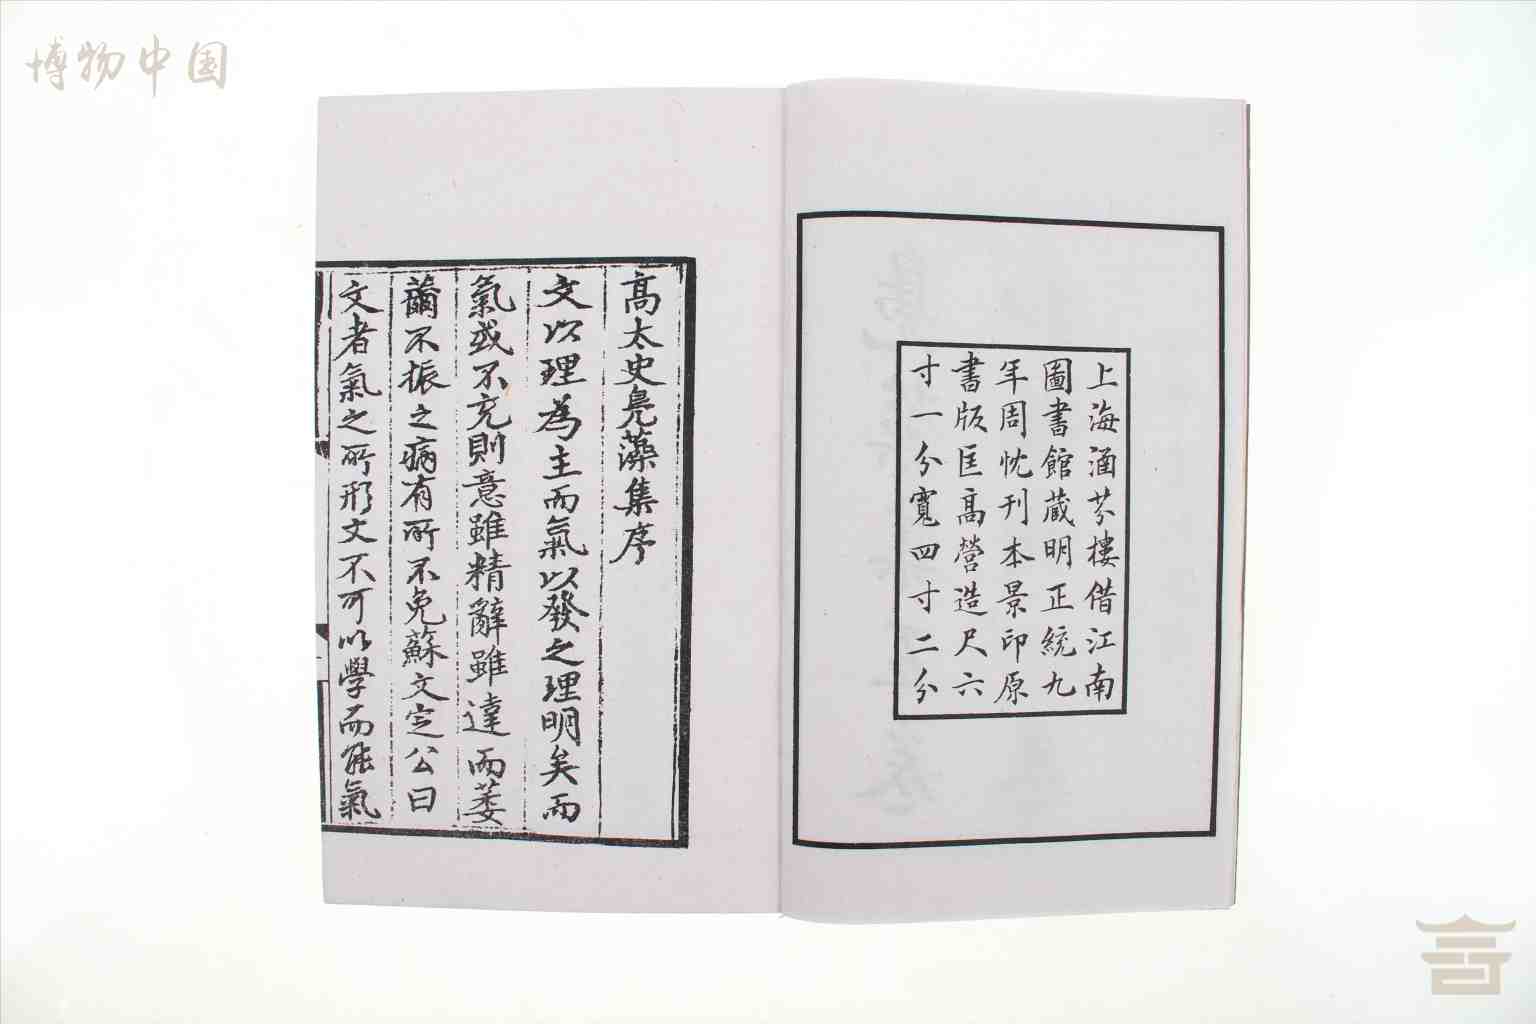 博物中国
上海涵芬樓借江南
圖書館蔵明正統九
年周忱刊本景印原
書版匡高營造尺六
寸一分寬四寸二分
高太史鳧藻集序
文以理為主而氣以發之理明矣而
氣或不充則意雖精辭雖達而萎
薾不振之病有所不免蘇文定公曰
文者氣之所形文不可以學而能氣